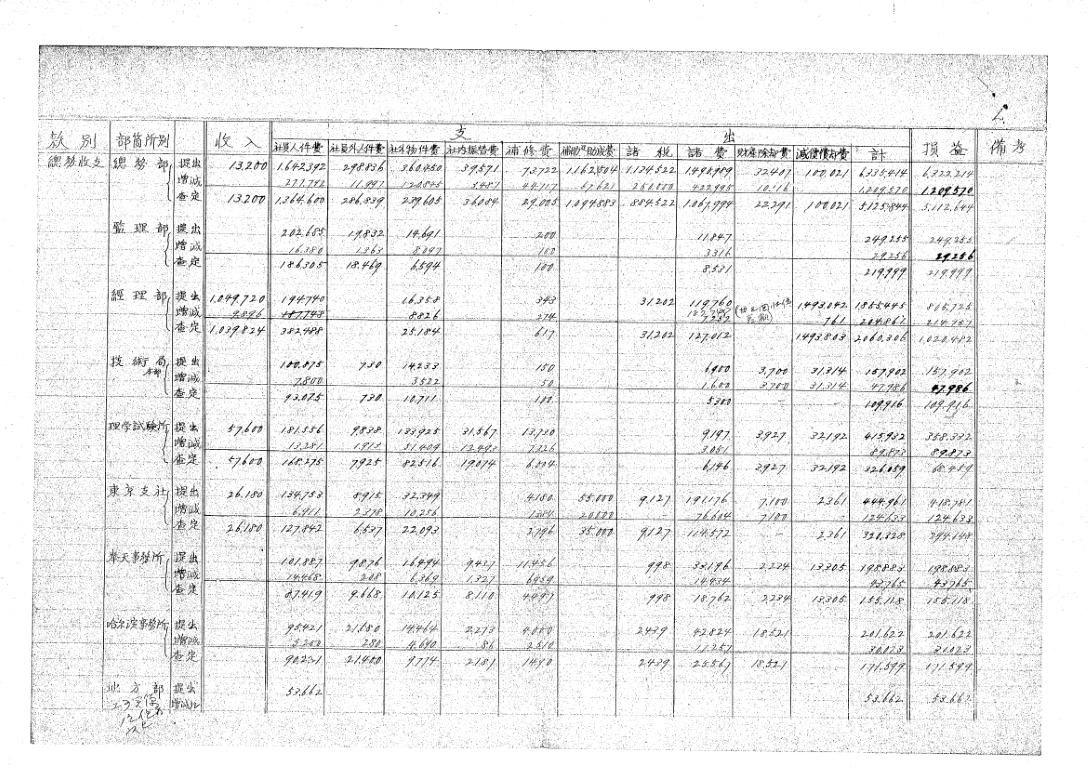 款別 部箇所別 収入 支出 損益 備考
社員人件費 社員外人件費 社外物件費 社内振替費 補修費 補助及助成費 諸税 諸費 財産除却費 減価償却費 計
總務收支 總務部 提出 13,200 1,642,392 298,836 360,450 39,571 73,722 1,162,504 1,134,522 1,490,989 32,407 100,021 6,335,414 6,322,214
増減 277,792 11,997 120,845 3,487 44,717 67,621 250,000 422,995 10,116 1,209,570 1,209,570
査定 13,200 1,364,600 286,839 239,605 36,084 29,005 1,094,883 884,522 1,067,994 22,291 100,021 5,125,844 5,112,644
監理部 提出 202,685 19,832 14,691 200 11,847 249,255 249,255
増減 16,380 1,363 8,097 100 3,316 29,256 29,256
査定 186,305 18,469 6,594 100 8,531 219,999 219,999
經理部 提出 1,049,720 194,740 16,358 343 31,202 119,760 1,493,042 1,855,445
増減 9,896 8,826 274 761 204,861 214,757
査定 1,039,824 382,488 25,184 617 31,202 127,012 1,493,803 2,060,306 1,020,482
技術局 本部 提出 100,875 730 14,233 150 6,900 3,700 31,314 157,902 157,902
増減 7,800 3,522 50 1,600 3,700 31,314 47,986 47,986
査定 93,075 730 10,711 100 5,300 – – 109,916 109,916
理学試験所 提出 57,600 181,556 9,838 133,925 31,567 13,720 9,197 3,927 32,192 415,932 358,332
増減 13,281 1,913 51,409 12,493 7,726 3,051 89,873 89,873
査定 57,600 168,275 7,925 82,516 19,074 6,146 3,927 32,192 326,059
東京支社 提出 26,180 134,753 8,915 32,349 4,180 55,000 9,127 191,176 7,100 2,361 444,961 418,781
増減 6,911 2,378 10,256 1,384 20,000 76,604 7,100 124,633 124,633
査定 26,180 127,842 6,537 22,093 2,796 35,000 9,127 114,572 – 2,361 320,328 294,148
奉天事務所 提出 101,887 9,876 16,494 9,437 11,456 998 33,196 2,234 13,305 198,883 198,883
増減 14,468 208 6,369 1,327 6,959 14,434 43,765 43,765
査定 87,419 9,668 10,125 8,110 4,497 998 18,762 2,234 13,305 155,118 155,118
哈尔濱事務所 提出 95,421 21,680 14,464 2,273 4,000 2,439 42,824 18,521 201,622 201,622
増減 280 4,690 86 2,510 17,257 30,023 30,023
査定 90,231 21,400 9,774 2,187 1,490 2,439 25,567 18,521 171,599 171,599
地方部 提出 53,662 53,662 53,662